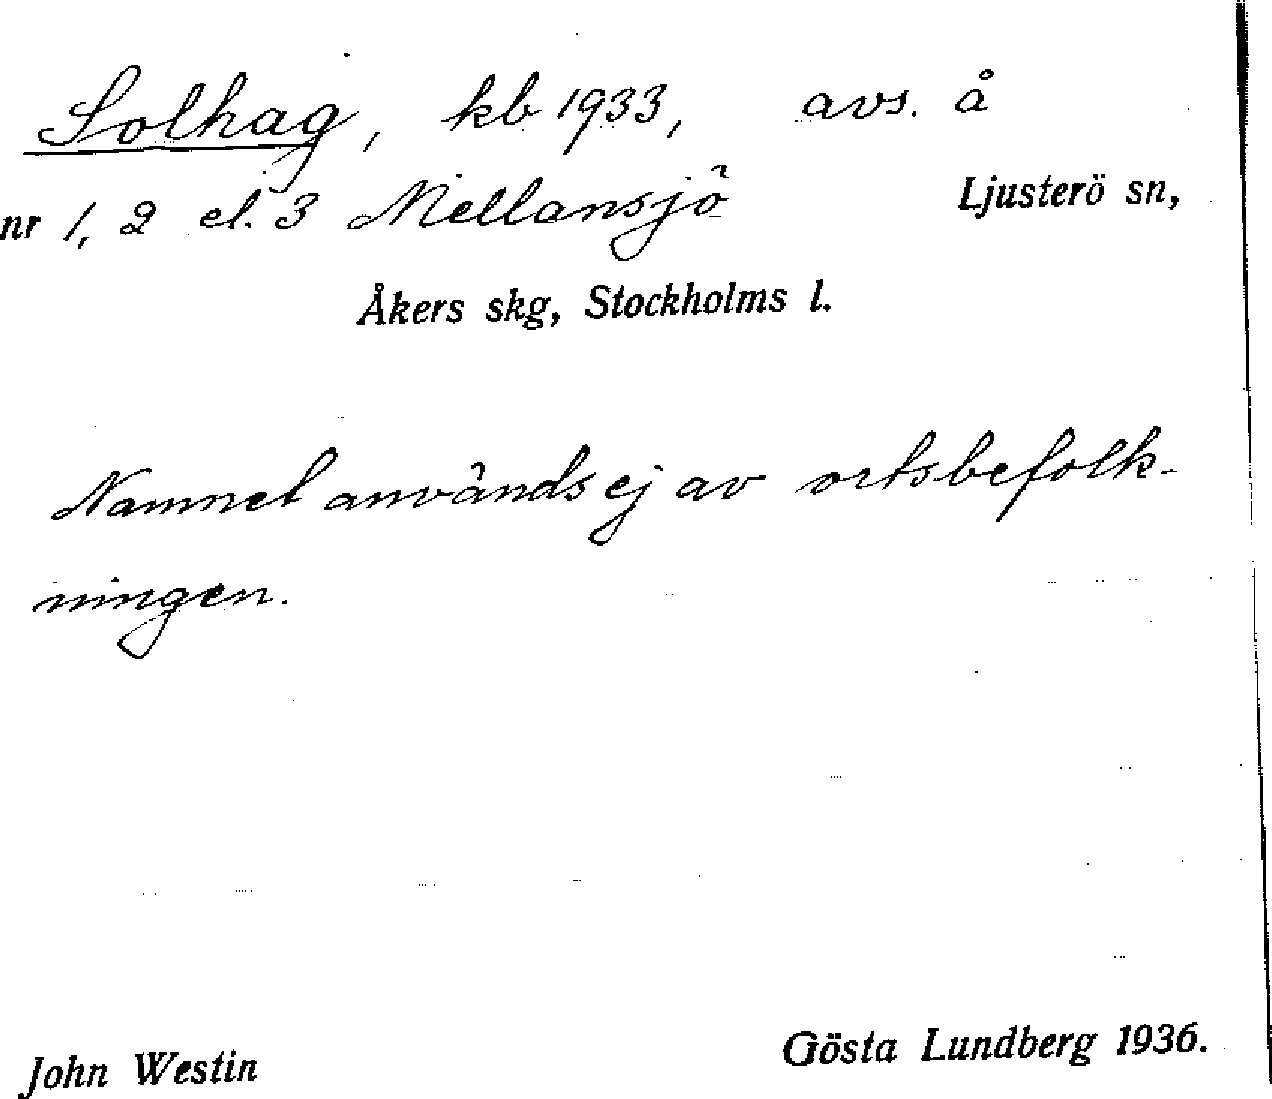 Solhag, kb 1933, avs. å
nr 1, 2 el. 3 Mellansjö Ljusterö sn,
Åkers skg, Stockholms l.
Namnet används ej av ortsbefolk-
ningen.
John Westin Gösta Lundberg 1936.